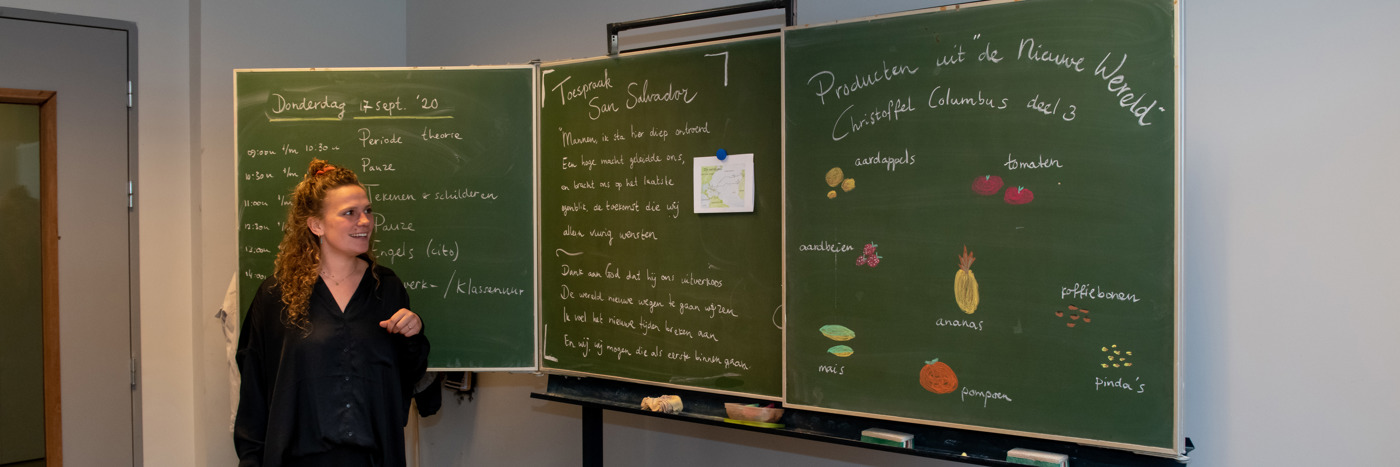 Donderdag 17 sept. '20
09:00u t/m 10:30u Periode theorie
10:30u t/m Pauze
11:00u t/m Tekenen & schilderen
12:30u Pauze
13:00u Engels (cito)
14:00 werk- / Klassenuur
Toespraak
San Salvador
"Mannen, ik sta hier diep ontroerd
Een hoge macht geleidde ons,
en bracht ons op het laatste
ogenblik, de toekomst die wij
allen vurig wensten
Dank aan God dat hij ons uitverkoos
De wereld nieuwe wegen te gaan wijzen
Ik voel het nieuwe tijden breken aan
En wij, wij mogen die als eerste binnen gaan
Producten uit "de Nieuwe Wereld"
Christoffel Columbus deel 3
aardappels
tomaten
aardbeien
ananas
koffiebonen
mais
pompoen
pinda's